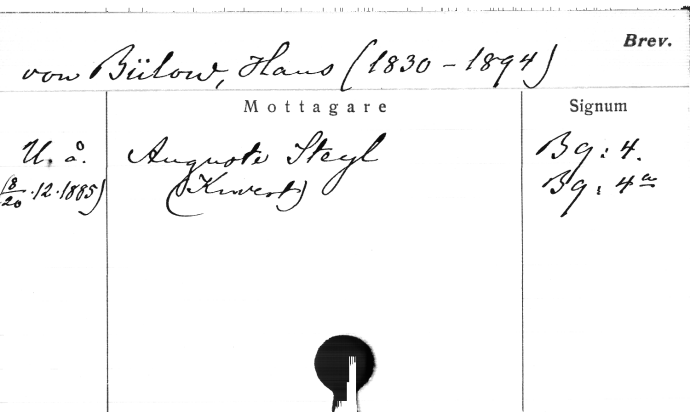 Brev.
von Bülow, Hans (1830 - 1894)
Mottagare
Signum
U. å. Auguste Steyl Bg: 4.
(8/20 . 12 . 1885) (Kuvert) Bg: 4a